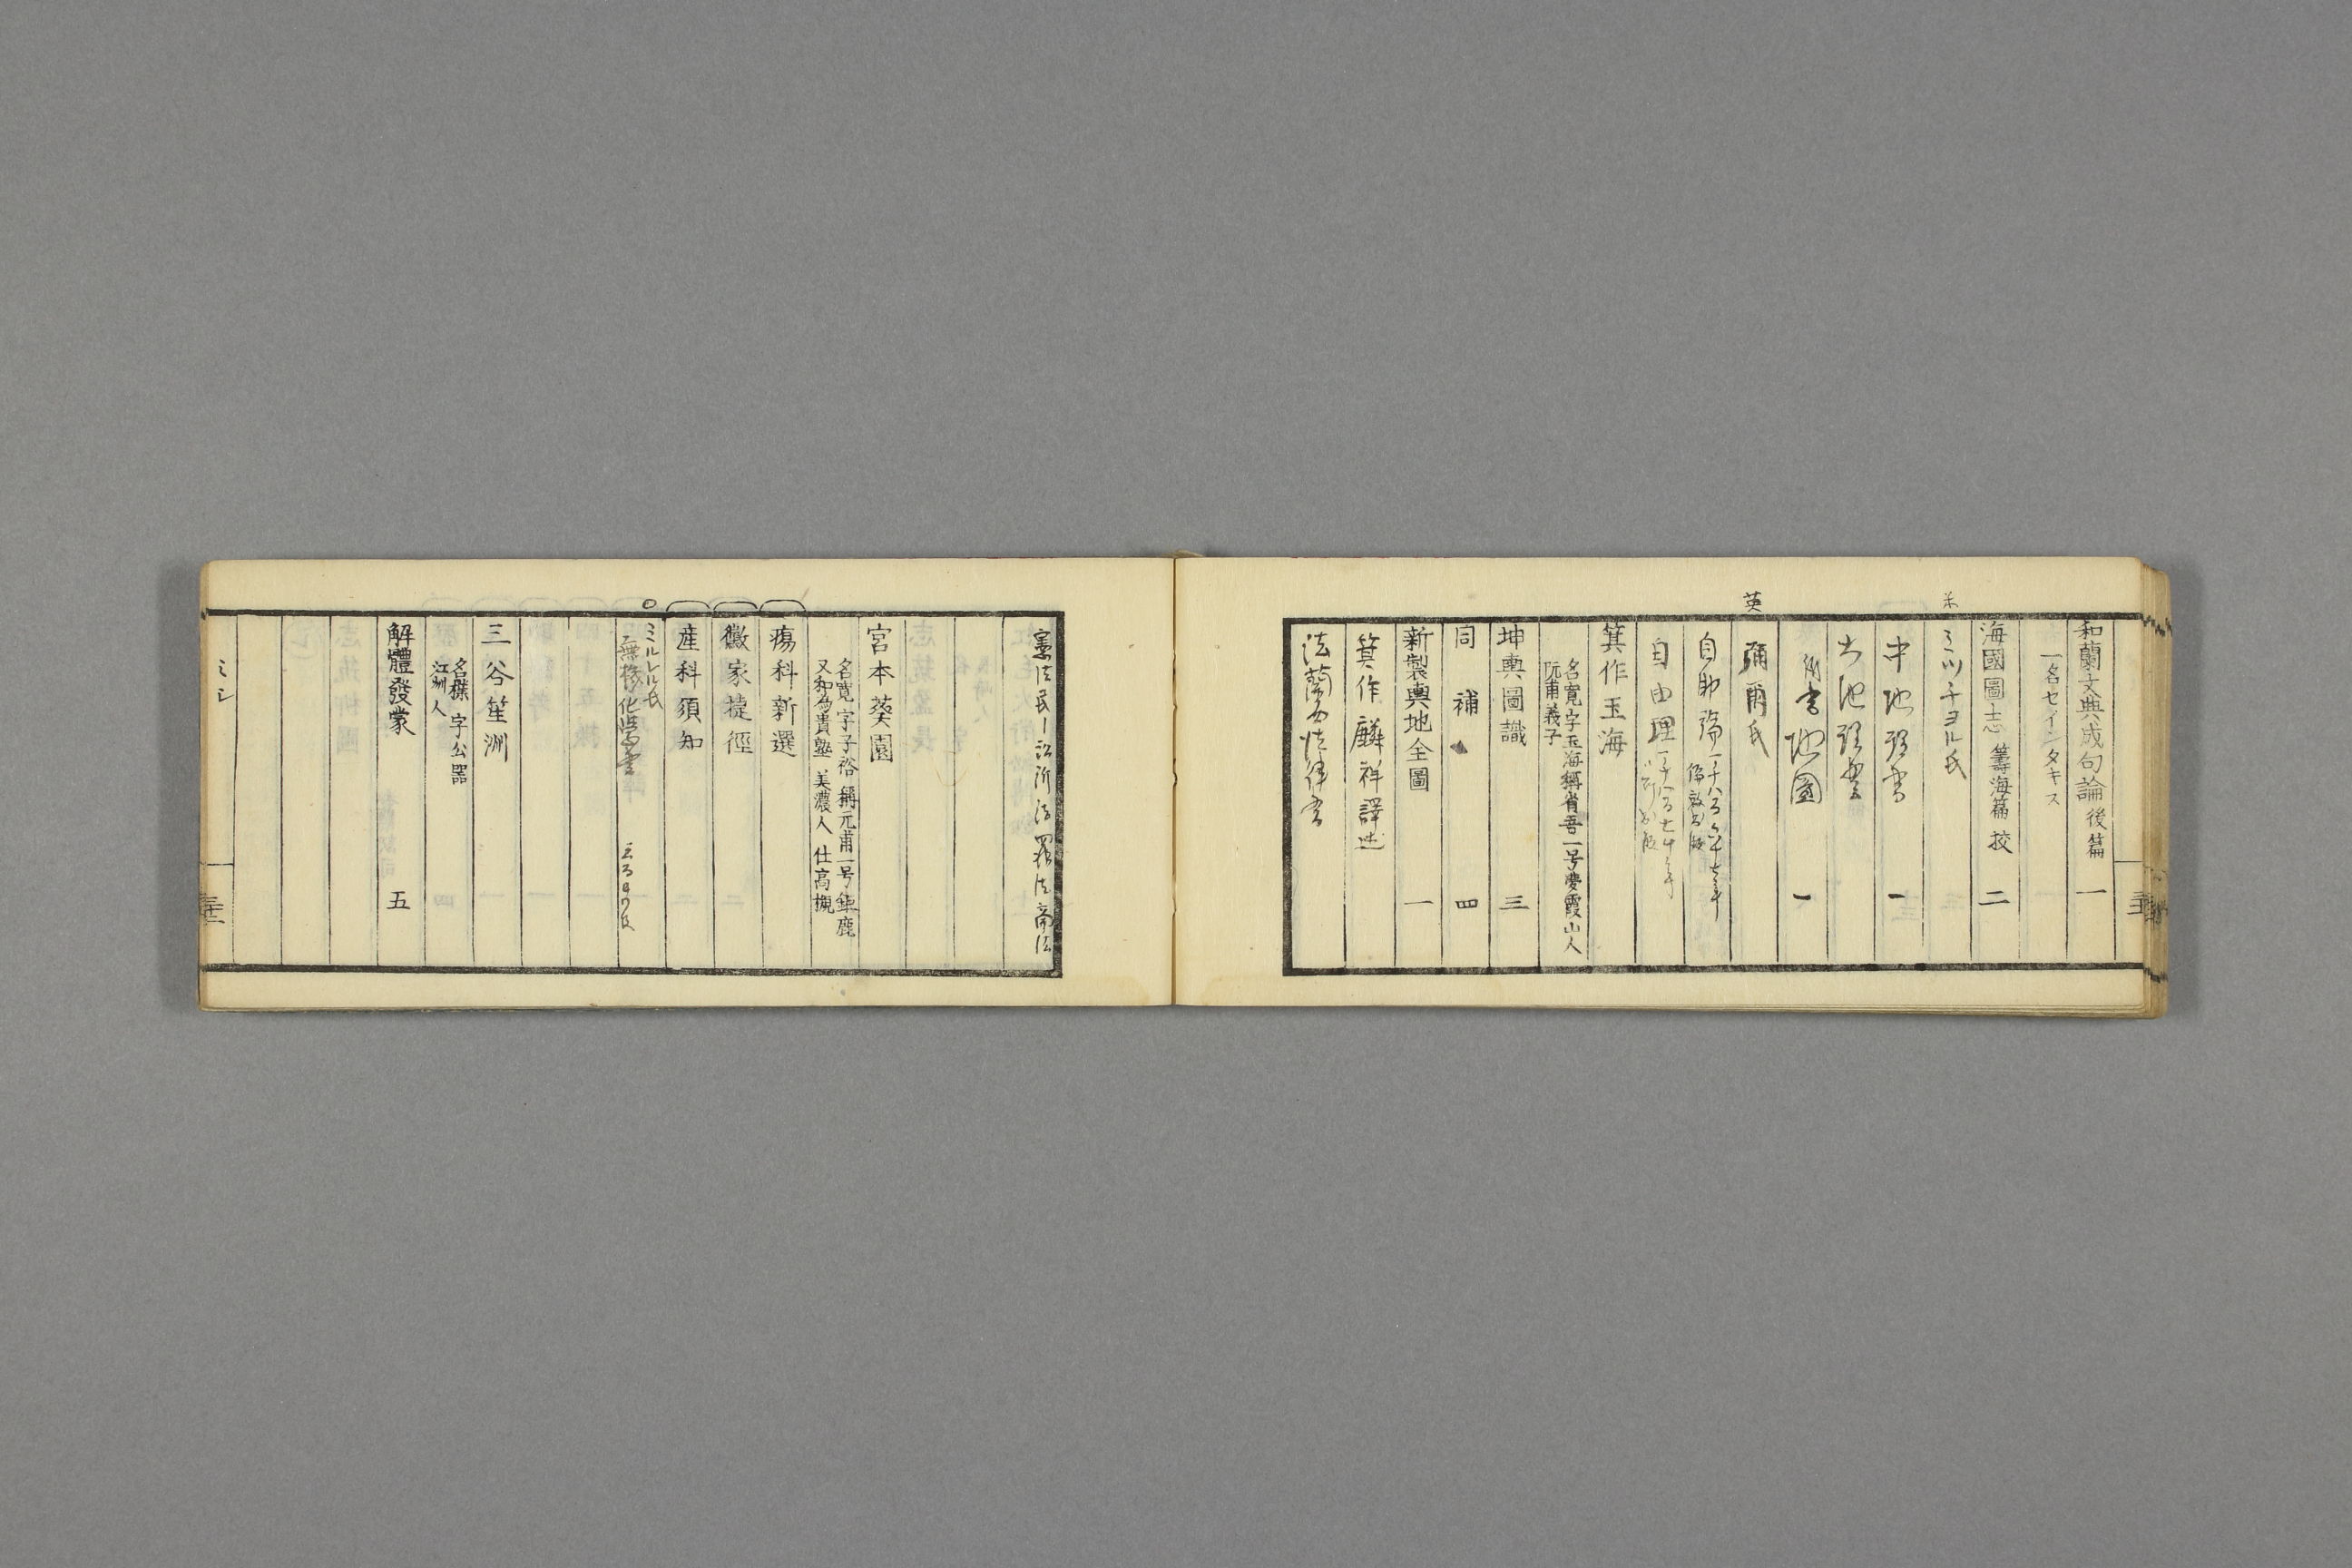 和蘭文典成句論後篇 一
一名セインタキス
海國圖志 籌海篇 挍 二
米
ミッチヨル氏
中地理書 一
大地理書
附書地圖 一
英
彌爾氏
自助論 一千八百六十七年
倫敦出版
自由理 一千八百七十年
出版
箕作玉海
名寛字玉海稱省吾一号夢霞山人
阮甫義子
坤輿圖識 三
同 補 四
新製輿地全圖 一
箕作麟祥譯述
法蘭西法律書
憲法民法訴訟法罪法商法
宮本葵園
名寛 字子裕 稱元甫一号錬鹿
又和為貴塾 美濃人 仕高槻
瘍科新選
黴家捷徑
産科須知
ミルレル氏
無機化學書
三谷笙洲
名樸 字公器
江洲人
解體發蒙 五
ミシ